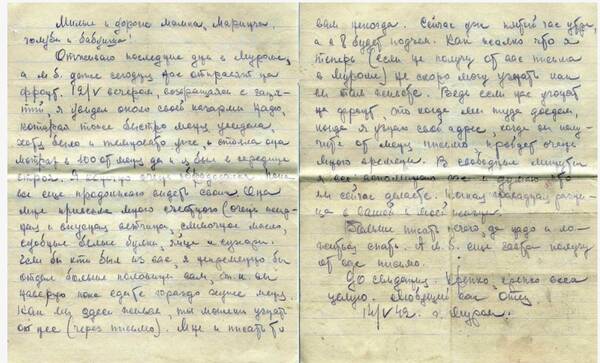 Милые и дорогие мамика, Маришка,
голубка и бабушка!
Отживаю последние дни в Муроме,
а м.б. даже сегодня нас отправят на
фронт. 12/V вечером, возвращаясь с заня-
тий, я увидел около своей казармы Надю,
которая тоже быстро меня увидела,
хотя было и темновато уже, и стояла она
метрах в 100 от меня да и я был в середине
строя. Я
все еще продолжаю видеть своих. Она
мне привезла много съестного (очень
и вкусная ветчина, сливочное масло,
сдобные белые булки, яйца и сухари.
Если бы кто был из вас, я непременно бы
отдал больше половины вам, т.к. вы
наверно пока едите гораздо хуже меня.
Как мы здесь живем, ты можешь узнать
от нее (через письмо). Мне и писать то
вам некогда. Сейчас уже пятый час утра,
а в 8 будет подъем. Как жалко что я
теперь (если не получу от вас письма
в Муроме) не скоро могу узнать как
вы там живете. Ведь если нас угонят
на фронт, то когда мы туда доедем,
когда я узнаю свой адрес, когда вы полу-
чите от меня письмо, пройдет очень
много времени. В свободные минуты
я все вспоминаю вас и думаю что
вы сейчас делаете. Какая
в вашей и моей жизни.
Больше писать нечего, да надо и ло-
житься спать. А м.б. еще завтра получу
от вас письмо.
До свидания. Крепко, крепко всех
целую. Любящий вас Отец
14/V 42. г. Муром.